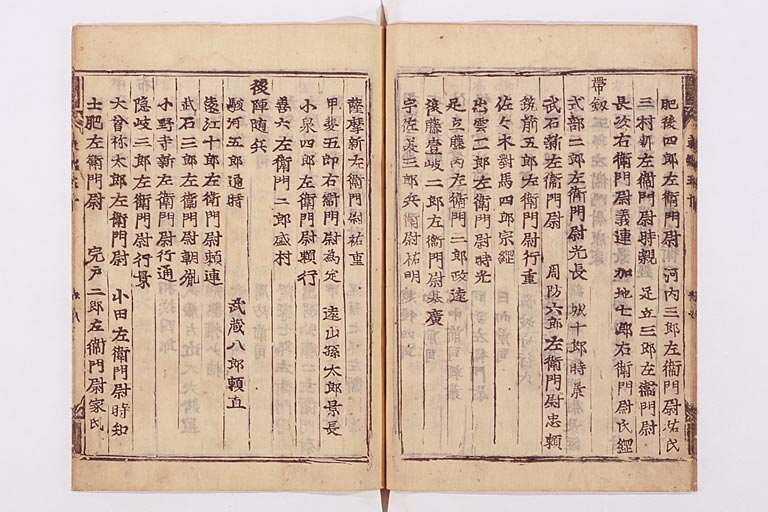 肥後四郎左衛門尉 河内三郎左衛門尉祐氏
三村新左衛門尉時親 足立三郎左衛門尉
長次右衛門尉義連 加地七郎右衛門尉氏經
帶釼
式部二郎左衛門尉光長 城十郎時景
武石新左衛門尉 周防六郎左衛門尉忠頼
筑前五郎左衛門尉行重
佐々木對馬四郎宗綱
出雲二郎左衛門尉時光
足立藤内左衛門二郎政遠
後藤壹岐二郎左衛門尉基廣
宇佐美三郎兵衛尉祐明
薩摩新左衛門尉祐重
甲斐五郎右衛門尉為定 遠山孫太郎景長
小泉四郎左衛門尉頼行
善六左衛門二郎盛村
後陣随兵
駿河五郎通時 武蔵八郎頼直
遠江十郎左衛門尉頼連
武石三郎左衛門尉朝胤
小野寺新左衛門尉行通
隠岐三郎左衛門尉行景
大曽祢太郎左衛門尉 小田左衛門尉時知
土肥左衛門尉 宍戸二郎左衛門尉家氏